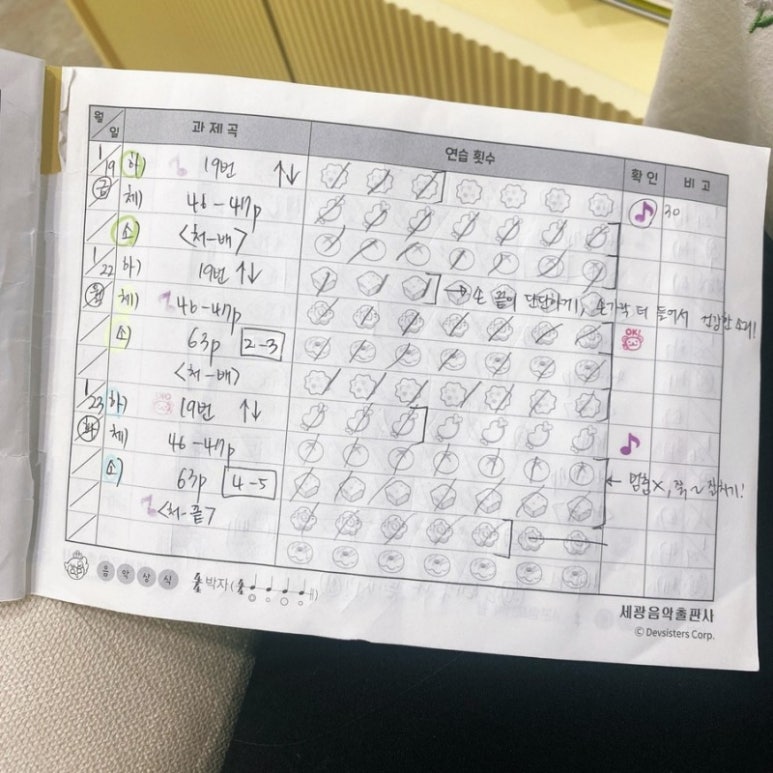 월 일 과제곡 연습 횟수 확인 비고
1/19 하) 19번 ↑↓
금 체) 46-47p 30
소) <처-배>
1/22 하) 19번 ↑↓ ← 손 끝이 단단하게!, 손가락 더 들어서 건강한 소리!
월 체) 46-47p
소) 63p 2-3 OK!
<처-배>
1/23 하) 19번 ↑↓
화 체) 46-47p
소) 63p 4-5 ← 멈춤X, 쭉~
<처-끝>
음악상식 박자(
세광음악출판사
© Devsisters Corp.